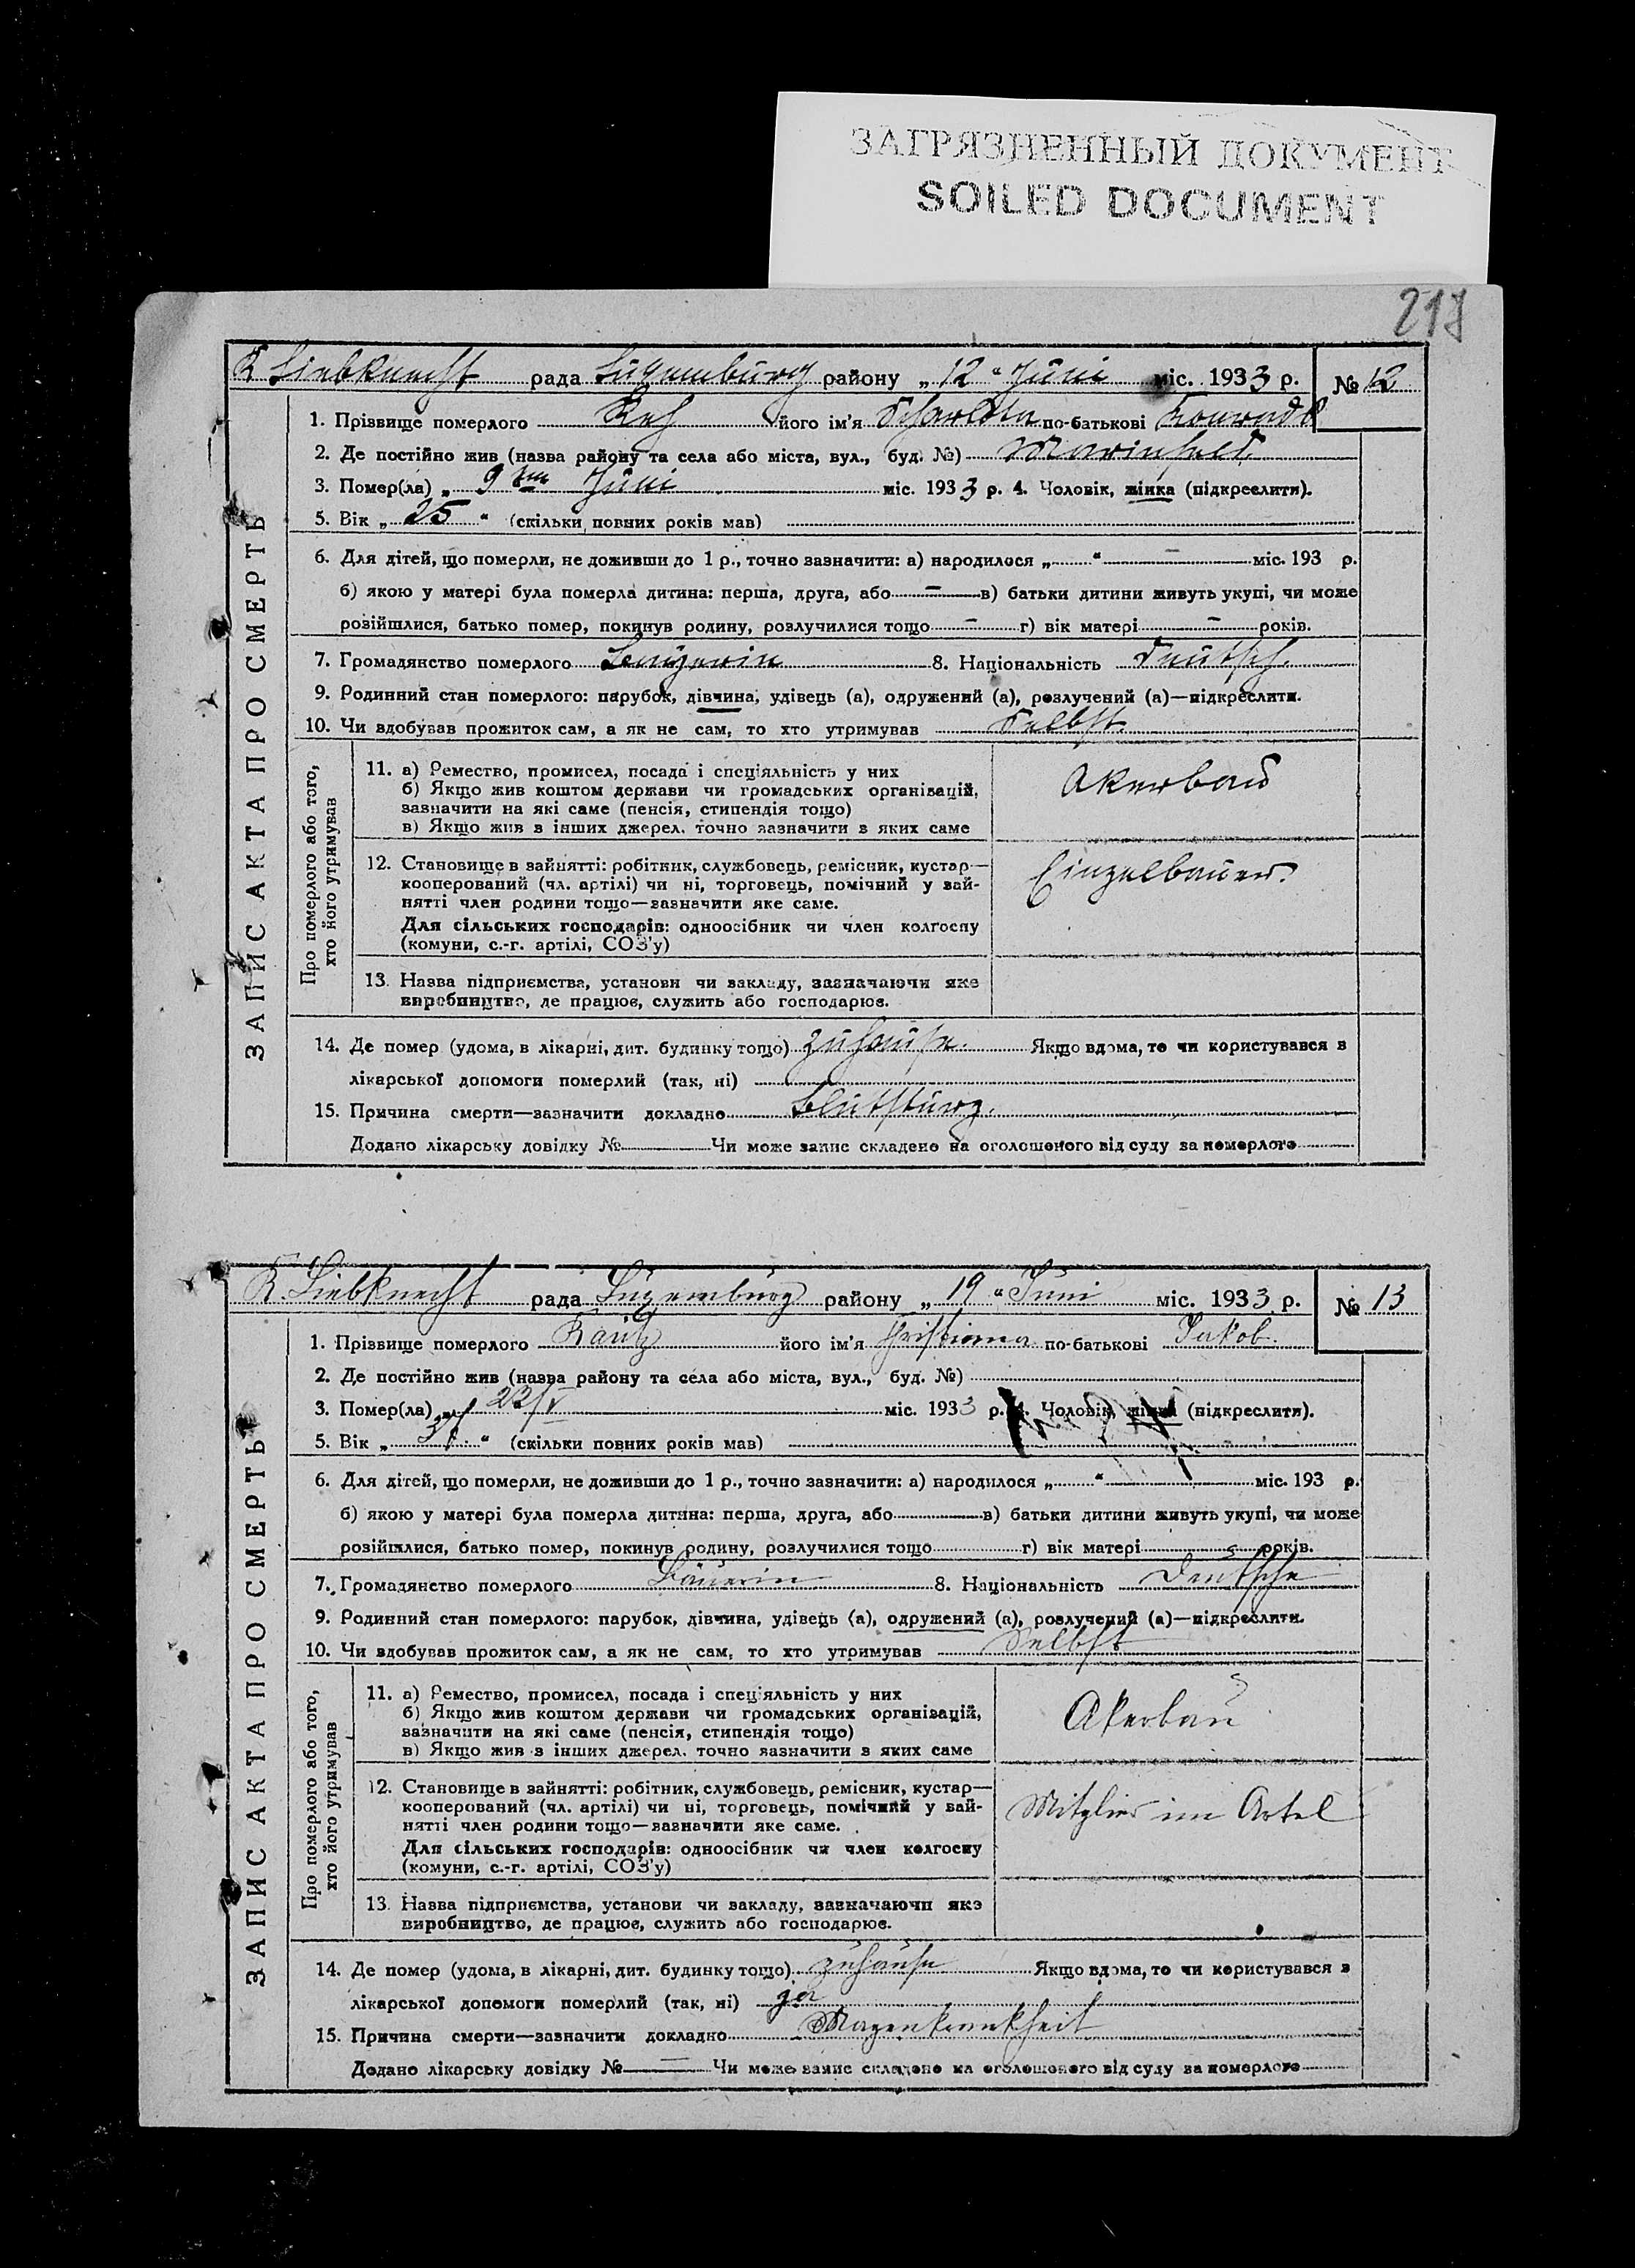 ЗАГРЯЗНЕННЫЙ ДОКУМЕНТ
SOILED DOCUMENT
217
K Liebknecht рада Luxemburg району „12“ Juni міс. 1933 р. № 12
1. Прізвище померлого його ім'я по-батькові
2. Де постійно жив (назва району та села або міста, вул., буд. №) Marinfeld
3. Помер(ла) „ 9ten Juni міс. 1933 р. 4. Чоловік, жінка (підкреслити).
5. Вік „ 25 “ (скільки повних років мав)
6. Для дітей, що померли, не доживши до 1 р., точно зазначити: а) народилося „ “ — міс. 193 р.
б) якою у матері була померла дитина: перша, друга, або — в) батьки дитини живуть укупі, чи може
розійшлися, батько помер, покинув родину, розлучилися тощо — г) вік матері — років.
7. Громадянство померлого 8. Національність Deutsch.
9. Родинний стан померлого: парубок, дівчина, удівець (а), одружений (а), розлучений (а)—підкреслити.
10. Чи вдобував прожиток сам, а як не сам, то хто утримував Selbst.
ЗАПИС АКТА ПРО СМЕРТЬ
Про померлого або того,
хто його утримував
11. а) Ремество, промисел, посада і спеціяльність у них
б) Якщо жив коштом держави чи громадських організацій,
зазначити на які саме (пенсія, стипендія тощо)
в) Якщо жив з інших джерел, точно зазначити з яких саме
Akerbau
12. Становище в занятті: робітник, службовець, ремісник, кустар—
кооперований (чл. артілі) чи ні, торговець, помічний у зай-
нятті член родини тощо—зазначити яке саме.
Для сільських господарів: одноосібник чи член колгоспу
(комуни, с.-г. артілі, СОЗ'у)
Einzelbauer.
13. Назва підприємства, установи чи закладу, зазначаючи яке
виробництво, де працює, служить або господарює.
14. Де помер (удома, в лікарні, дит. будинку тощо) zuhause. Якщо вдома, то чи користувався з
лікарської допомоги померлий (так, ні)
15. Причина смерти—зазначити докладно Blutsturz.
Додано лікарську довідку № Чи може запис складено на оголошеного від суду за померлого
K. Liebknecht рада Luxemburg району „19“ Juni міс. 1933 р. № 13
1. Прізвище померлого Rautz його ім'я Christiona по-батькові Jakob.
2. Де постійно жив (назва району та села або міста, вул., буд. №)
3. Помер(ла) „ 22/V міс. 1933 р. 4. Чоловік, жінка (підкреслити).
5. Вік „ “ (скільки повних років мав)
6. Для дітей, що померли, не доживши до 1 р., точно зазначити: а) народилося „ “ міс. 193 р.
б) якою у матері була померла дитина: перша, друга, або в) батьки дитини живуть укупі, чи може
розійшлися, батько помер, покинув родину, розлучилися тощо г) вік матері років.
7. Громадянство померлого Bäuerin 8. Національність Deutsche
9. Родинний стан померлого: парубок, дівчина, удівець (а), одружений (а), розлучений (а)—підкреслити.
10. Чи вдобував прожиток сам, а як не сам, то хто утримував Selbst
ЗАПИС АКТА ПРО СМЕРТЬ
Про померлого або того,
хто його утримував
11. а) Ремество, промисел, посада і спеціяльність у них
б) Якщо жив коштом держави чи громадських організацій,
зазначити на які саме (пенсія, стипендія тощо)
в) Якщо жив з інших джерел, точно зазначити з яких саме
Akerbau
12. Становище в занятті: робітник, службовець, ремісник, кустар—
кооперований (чл. артілі) чи ні, торговець, помічний у зай-
нятті член родини тощо—зазначити яке саме.
Для сільських господарів: одноосібник чи член колгоспу
(комуни, с.-г. артілі, СОЗ'у)
Mitglied im Artel
13. Назва підприємства, установи чи закладу, зазначаючи яке
виробництво, де працює, служить або господарює.
14. Де помер (удома, в лікарні, дит. будинку тощо) zuhause Якщо вдома, то чи користувався з
лікарської допомоги померлий (так, ні) ja
15. Причина смерти—зазначити докладно Magenkrankheit
Додано лікарську довідку № — Чи може запис складено на оголошеного від суду за померлого